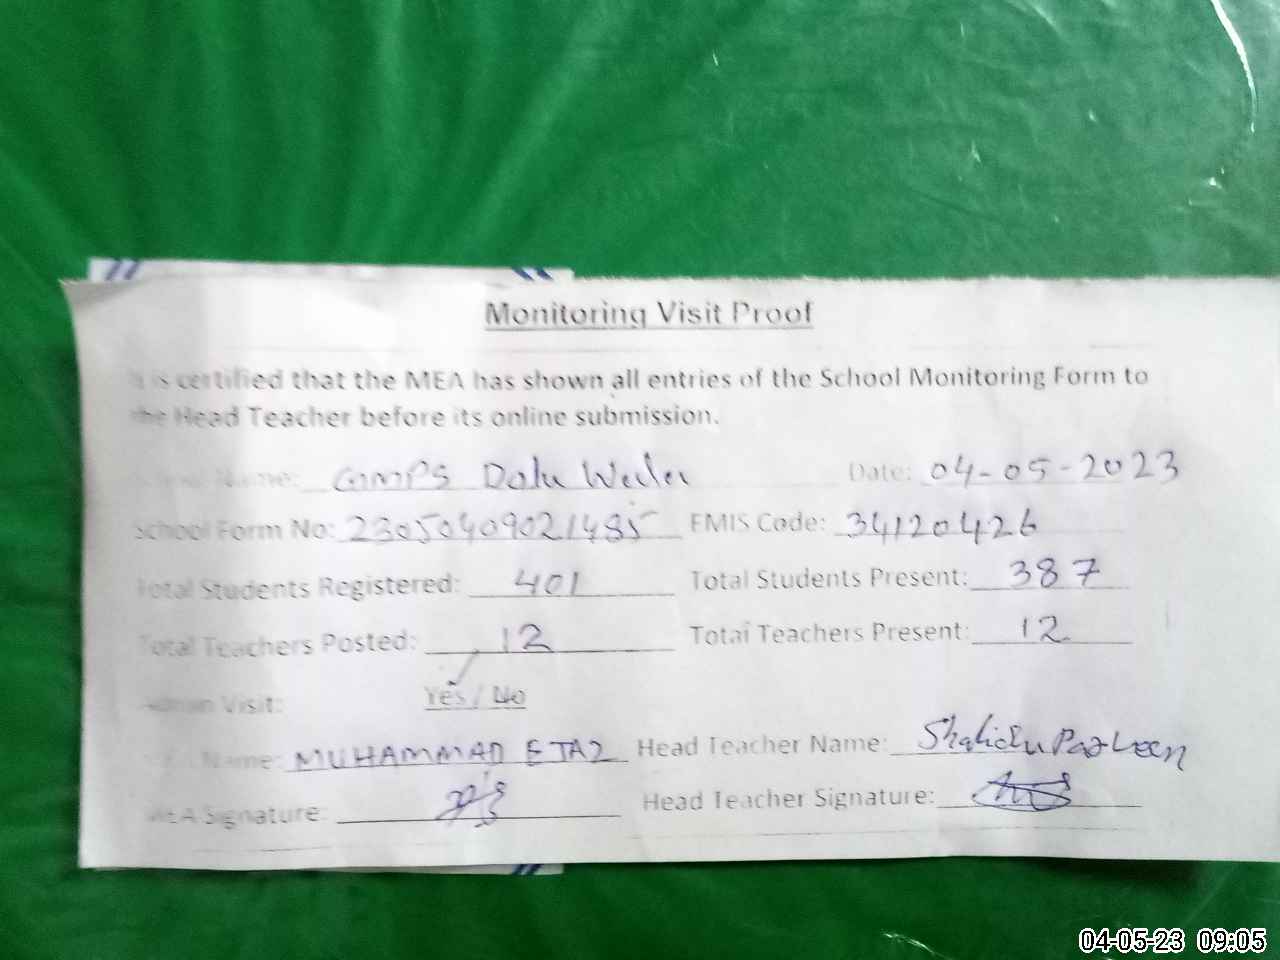 Monitoring Visit Proof
It is certified that the MEA has shown all entries of the School Monitoring Form to
the Head Teacher before its online submission.
School Name: GMPS Date: 04-05-2023
School Form No: 23050409021485 EMIS Code: 34120426
Total Students Registered: 401 Total Students Present: 387
Total Teachers Posted: 12 Total Teachers Present: 12
Admin Visit: Yes / No
Name: MUHAMMAD EJAZ Head Teacher Name: Shahida Parveen
MEA Signature: Head Teacher Signature:
04-05-23 09:05